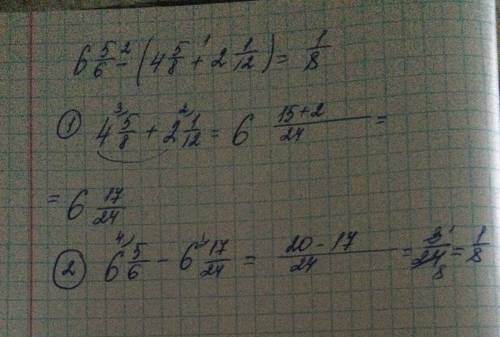 6 5/6 -² (4 5/8 +¹ 2 1/12) = 1/8
① 4 5/8³⁾ + 2 1/12²⁾ = 6 (15+2)/24 =
= 6 17/24
② 6 5/6⁴⁾ - 6 17/24¹⁾ = (20-17)/24 = 3¹/24₈ = 1/8